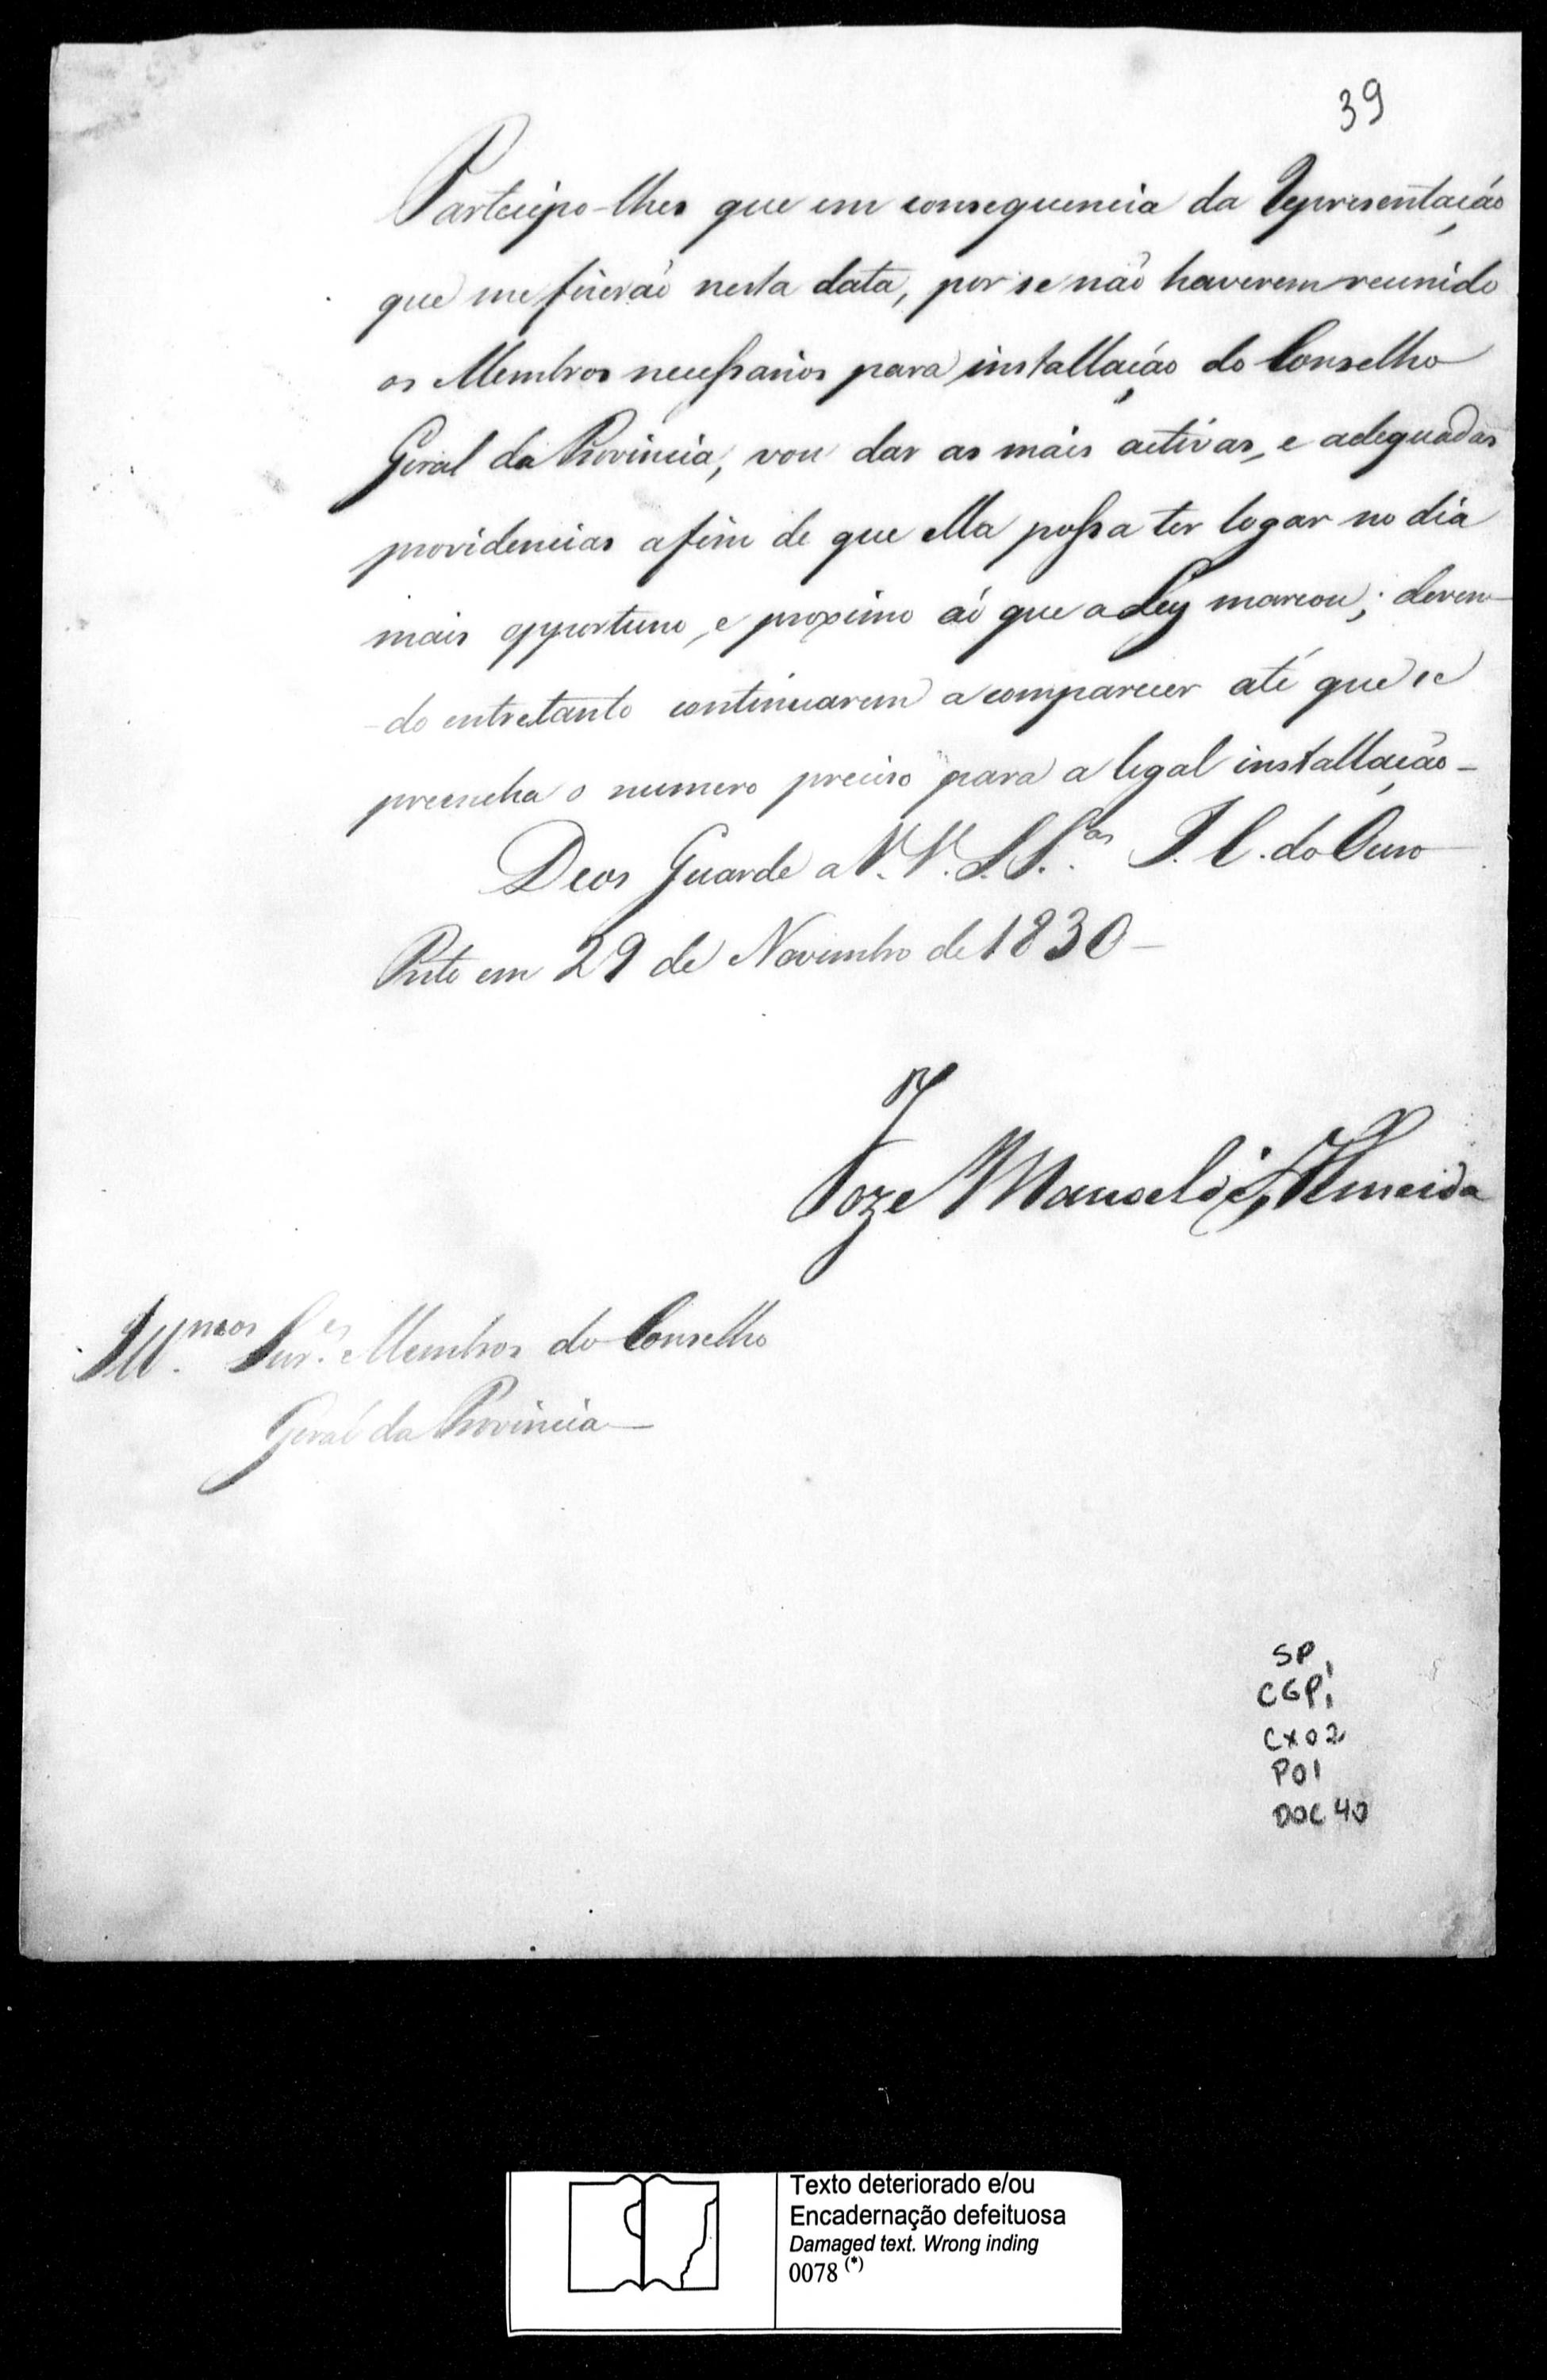 39
Participo-lhes que em consequencia da Representação
que me fizerão nesta data, por se não haverem reunido
os Membros necessarios para installação do Conselho
Geral da Provincia, vou dar as mais activas, e adequadas
providencias afim de que ella possa ter logar no dia
mais opportuno, e proximo áo que a Ley marcou; deven-
-do entretanto continuarem a comparecer até que se
preencha o numero preciso para a legal installação-
Deos Guarde a V.V. S.S.as I. C. do Ouro
Preto em 29 de Novembro de 1830-
Joze Manoel de Almeida
Ill.mos Snr.es Membros do Conselho
Geral da Provincia-
SP
CGP1
CX02
P01
DOC 40
Texto deteriorado e/ou
Encadernação defeituosa
Damaged text. Wrong inding
0078 (*)